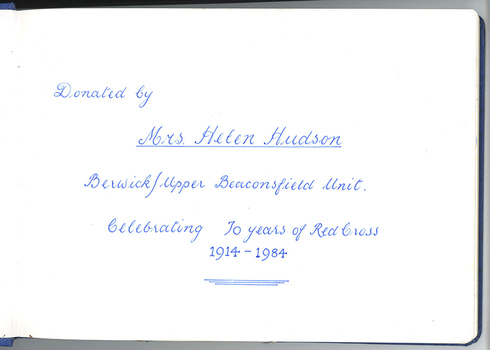 Donated by
Mrs. Helen Hudson
Berwick/Upper Beaconsfield Unit.
Celebrating 70 years of Red Cross
1914 - 1984